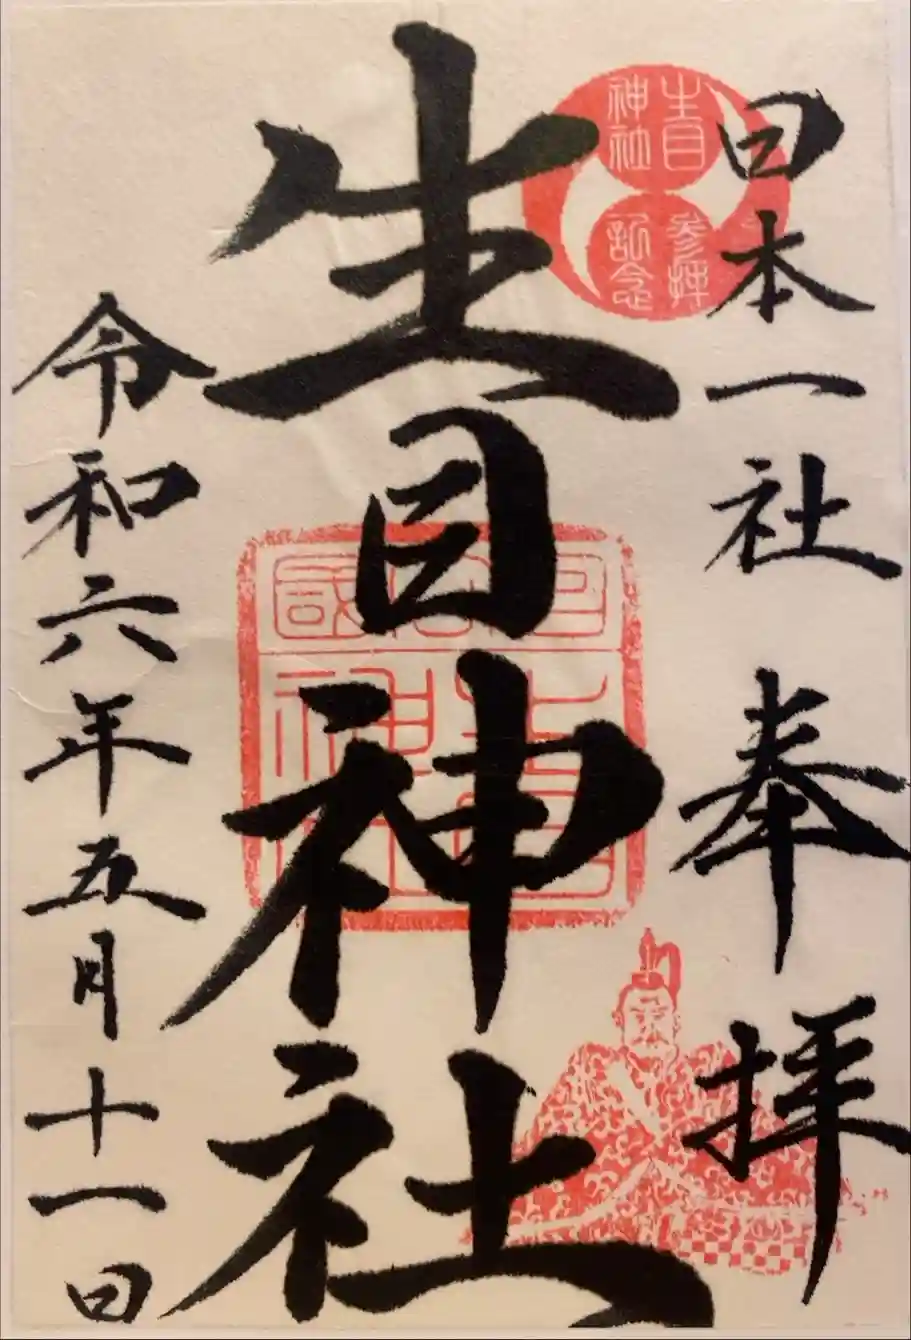 日本一社 奉拝
生目神社
令和六年五月十一日
生目
神社
参拝
記念